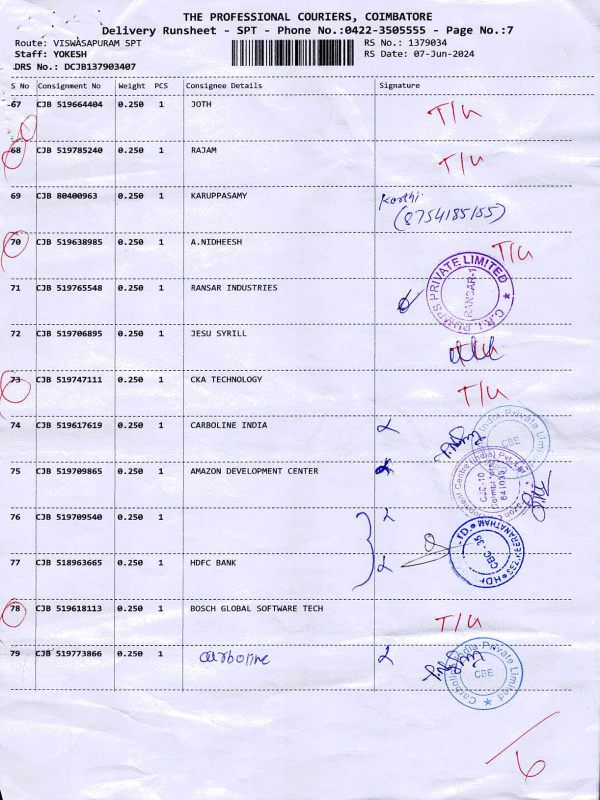 THE PROFESSIONAL COURIERS, COIMBATORE
Delivery Runsheet - SPT - Phone No.:0422-3505555 - Page No.:7
Route: VISWASAPURAM SPT RS No.: 1379034
Staff: YOKESH RS Date: 07-Jun-2024
DRS No.: DCJB137903407
S No Consignment No Weight PCS Consignee Details Signature
67 CJB 519664404 0.250 1 JOTH T/U
68 CJB 519785240 0.250 1 RAJAM T/U
69 CJB 80400963 0.250 1 KARUPPASAMY Karthi
(8754185155)
70 CJB 519638985 0.250 1 A.NIDHEESH T/U
71 CJB 519765548 0.250 1 RANSAR INDUSTRIES C.R.I. PUMPS PRIVATE LIMITED
72 CJB 519706895 0.250 1 JESU SYRILL
73 CJB 519747111 0.250 1 CKA TECHNOLOGY T/U
74 CJB 519617619 0.250 1 CARBOLINE INDIA India Private Limi CBE
75 CJB 519709865 0.250 1 AMAZON DEVELOPMENT CENTER
76 CJB 519709540 0.250 1
77 CJB 518963665 0.250 1 HDFC BANK
78 CJB 519618113 0.250 1 BOSCH GLOBAL SOFTWARE TECH T/U
79 CJB 519773866 0.250 1 carboline Carboline India Private Limited CBE
6